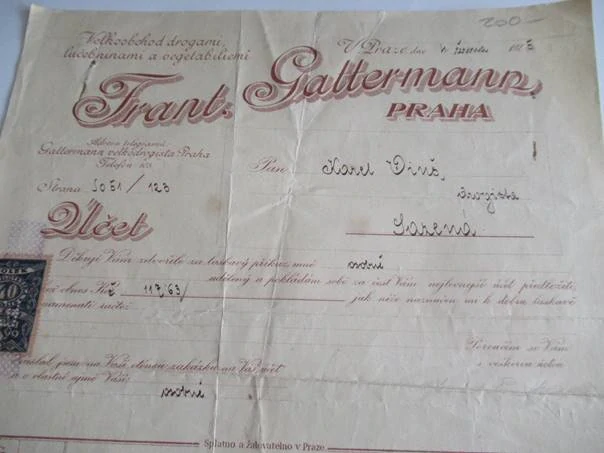 200-
Velkoobchod drogami,
lučebninami a vegetabiliemi
V Praze, dne
Frant. Gattermann,
PRAHA
Adresa telegramů:
Gattermann velkodrogista Praha
Telefon
Pan Karel
drogista
Strana 5081/123
Účet
Děkuji Vám zdvořile za laskavý příkaz mně osobní
udělený a pokládám sobě za čest Vám nejlevnější účet předložiti,
obnos Kč 117/63/ jak níže naznačen mi k dobru laskavě
Poroučím se Vám
s veškerou úctou
jsem na Vaši ctěnou zakázku na Váš účet
a o vlastní ujmě Vaší:
osobní
Splatno a žalovatelno v Praze